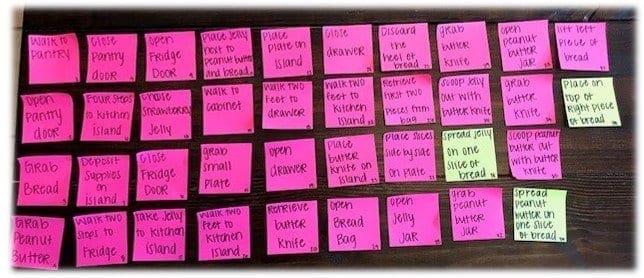 walk to
pantry
open
pantry
door
GRAB
Bread
GRAB
Peanut
Butter
close
Pantry
DOOR
Four steps
to kitchen
island
Deposit
supplies
on island
Walk two
steps to
Fridge
open
Fridge
DOOR
choose
strawberry
Jelly
close
Fridge
DOOR
take Jelly
to kitchen
island
Place jelly
next to
peanut butter
and bread
walk to
cabinet
grab
small
plate
walk two
Feet to
kitchen
island
place
plate on
island
walk two
feet to
drawer
open
drawer
Retrieve
butter
knife
close
drawer
walk two
feet to
kitchen
island
place
butter
knife on
island
open
Bread
Bag
Discard
the
heel of
bread
Retrieve
first two
pieces from
bag
place slices
side by side
on plate
open
Jelly
JAR
grab
butter
knife
scoop jelly
out with
butter knife
spread jelly
on one
slice of
bread
grab
peanut
butter
JAR
open
peanut
butter
JAR
grab
butter
knife
scoop peanut
butter out
with butter
knife
spread
peanut
butter on
one slice
of bread
lift left
piece of
bread
Place on
top of
right piece
of bread